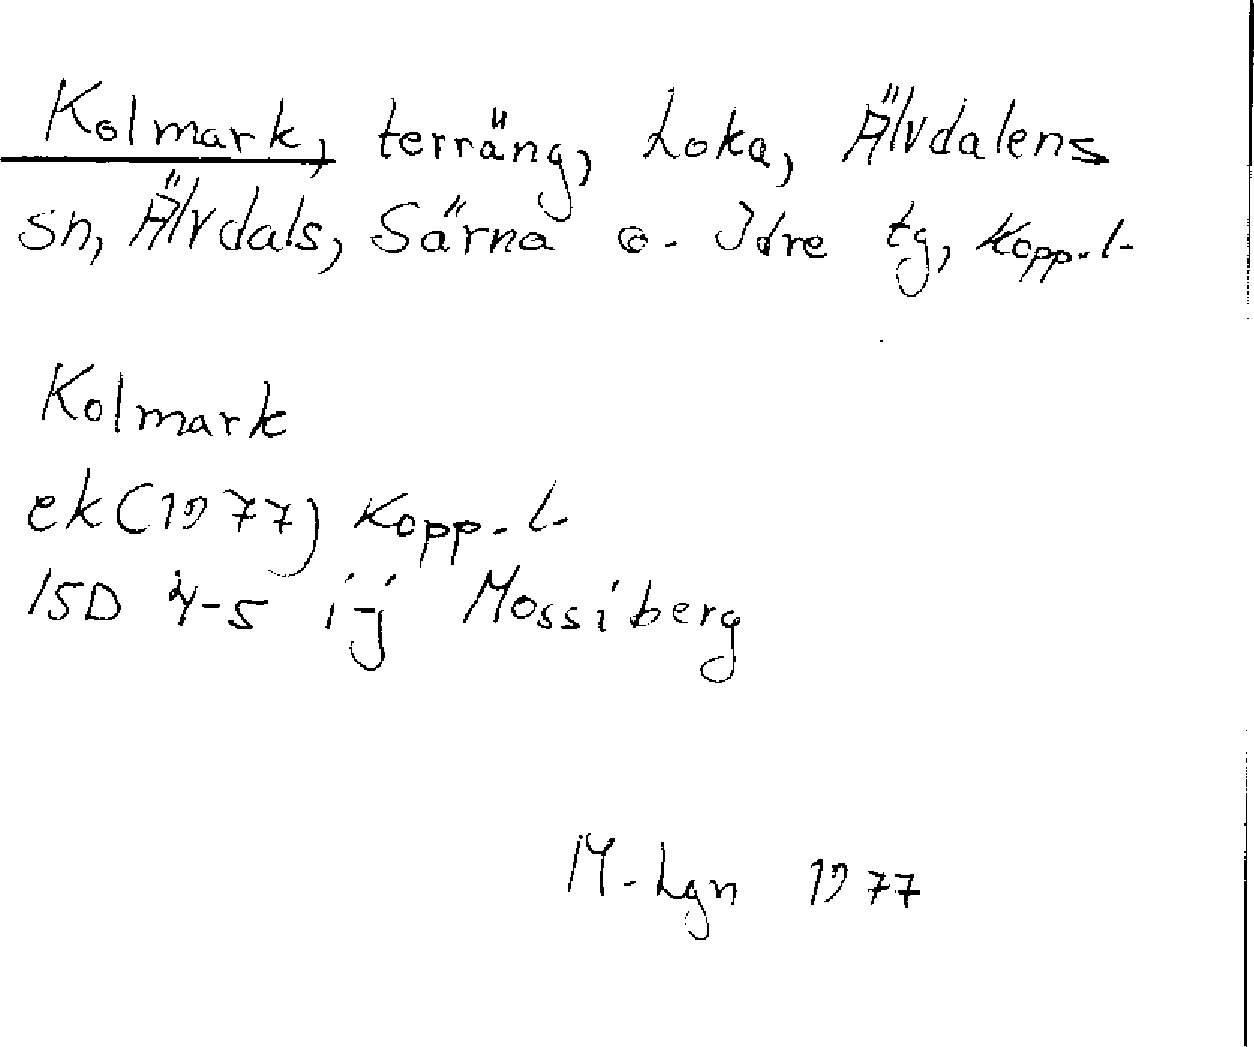 Kolmark, terräng, Loka, Älvdalens
sn, Älvdals, Särna o. Idre tg, Kopp. l.
Kolmark
ek (1977) Kopp. l.
15D 4-5 i-j Mossiberg
M. Lgn 1977